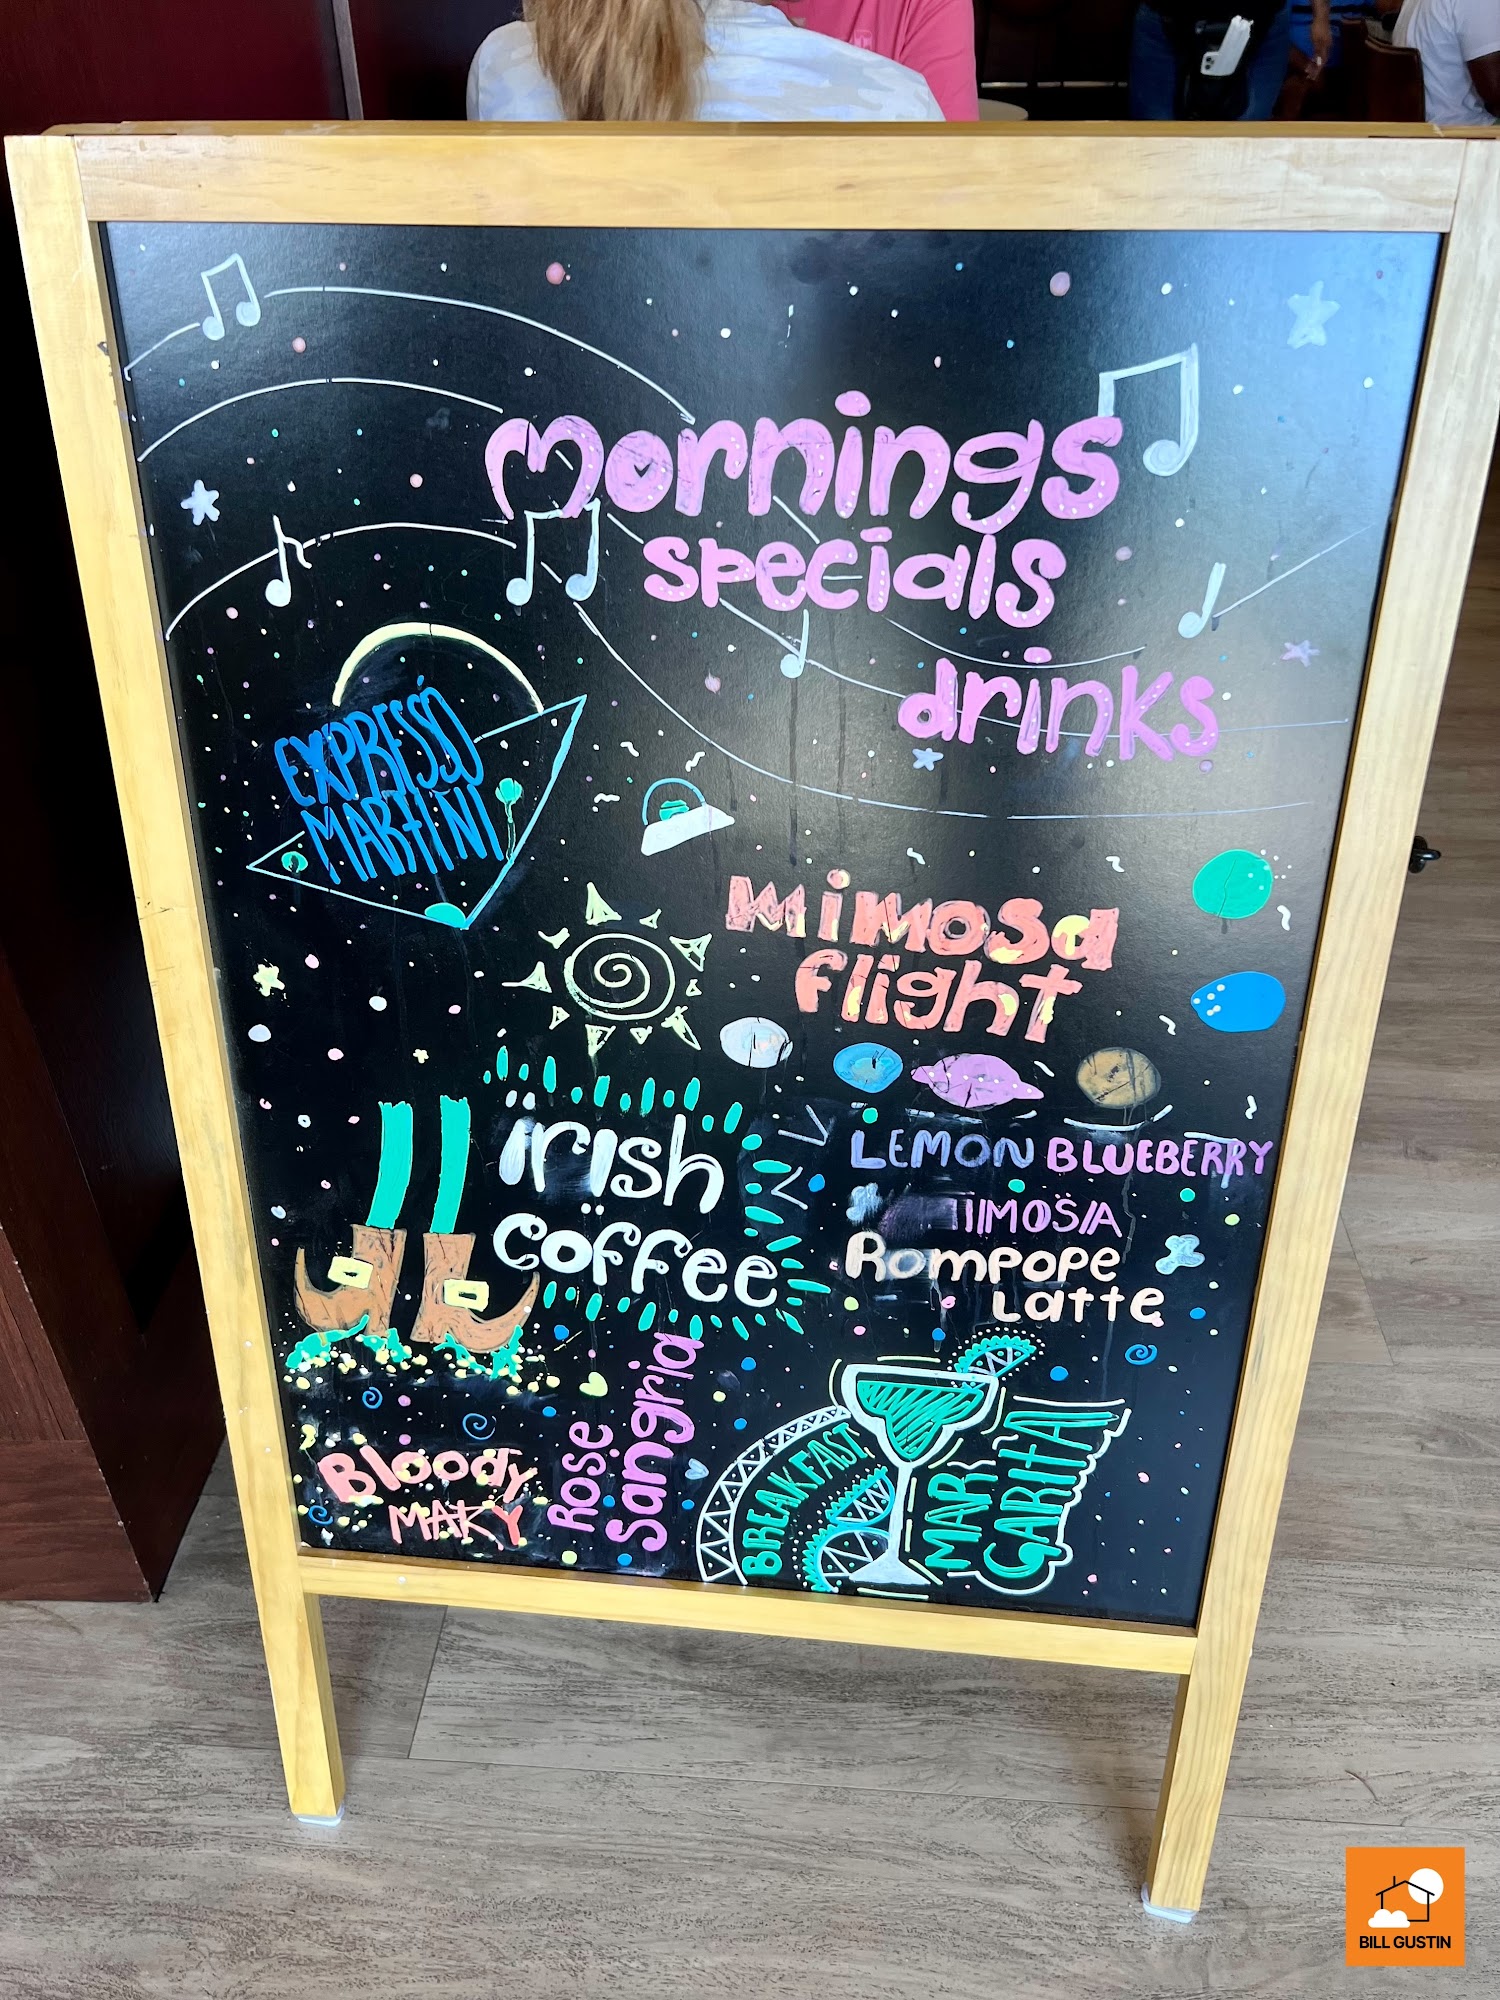 mornings
specials
drinks
EXPRESSO
MARTINI
Mimosa
flight
irish
coffee
LEMON BLUEBERRY
IIMOSA
Rompope
Latte
Bloody
MARY
Rose
Sangria
BREAKFAST
MAR
GARITA
BILL GUSTIN